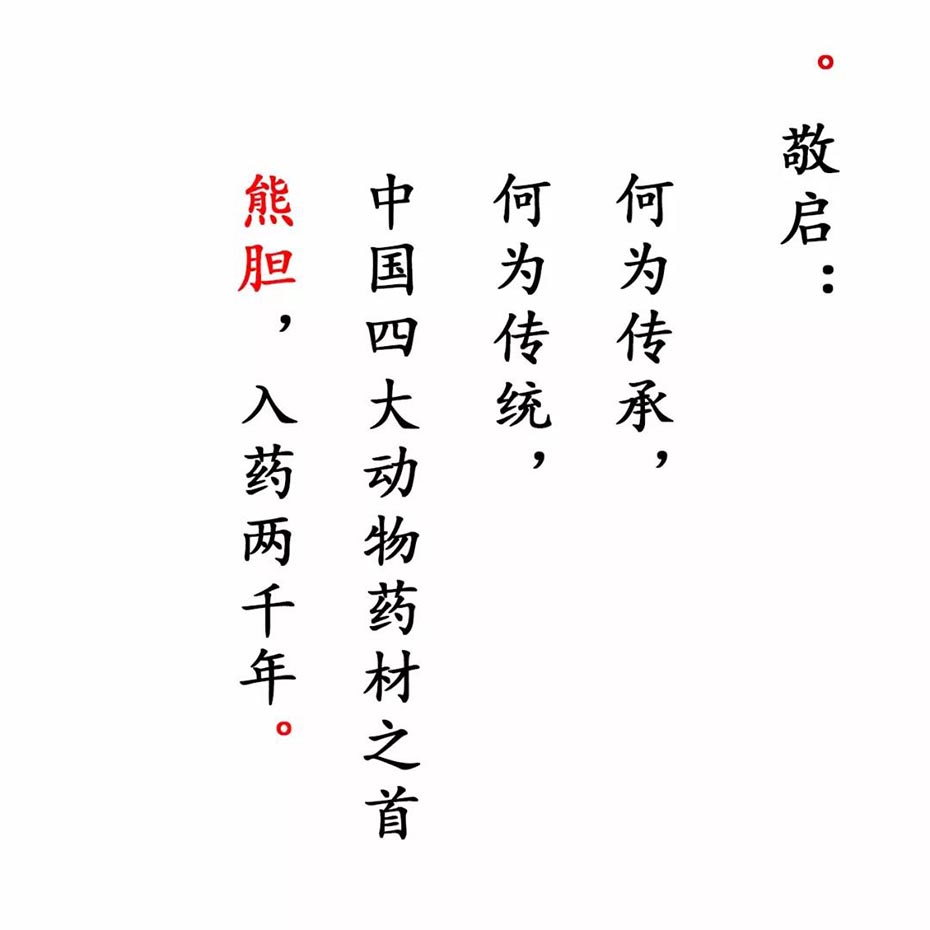 。敬启：
何为传承，
何为传统，
中国四大动物药材之首
熊胆，入药两千年。